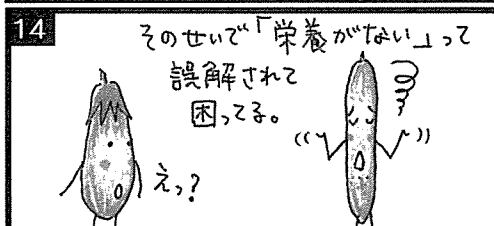 14
そのせいで「栄養がない」って
誤解されて
困ってる。
えっ?